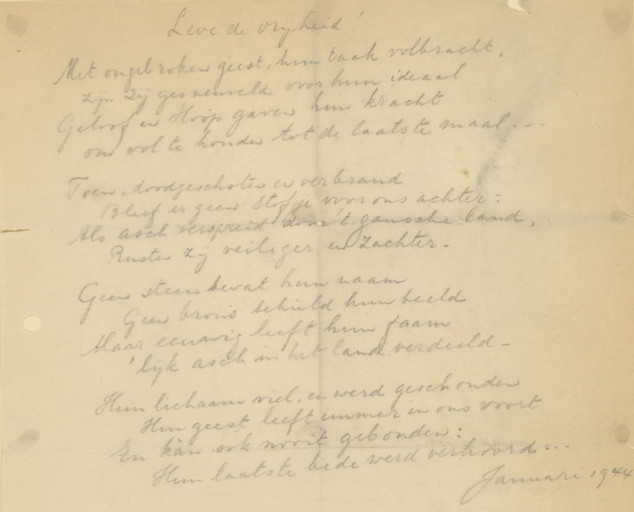 Leve de vrijheid!
Met ongebroken geest, hun taak volbracht,
zijn zij gesneuveld voor hun ideaal
Geloof en Hoop gaven hun kracht
om vol te houden tot de laatste maal...
Toen, doodgeschoten en verbrand
Bleef er geen stofje voor ons achter:
Als asch verspreid door 't gansche land,
Rusten zij veiliger en zachter.
Geen steen bevat hun naam
Geen brons behield hun beeld
Maar eeuwig leeft hun faam
'lijk asch in het land verdeeld -
Hun lichaam viel, en werd geschonden
Hun geest leeft immer in ons voort
En kàn ook nooit gebonden:
Hun laatste bede werd verhoord...
Januari 1944